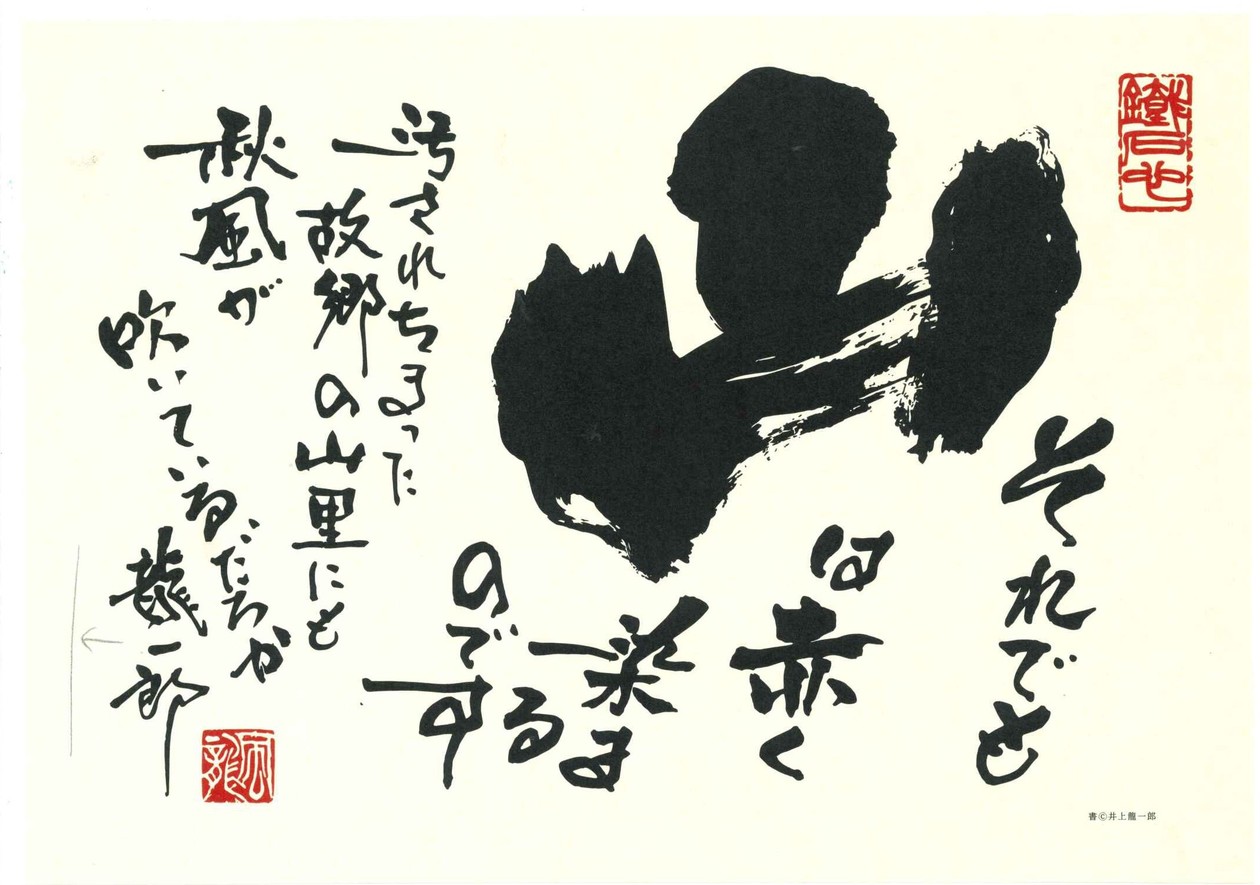 鐵石心
それでも
山
は赤く
染まる
のです
汚されちまった
故郷の山里にも
秋風が
吹いている
だろうか
龍一郎
書©井上龍一郎